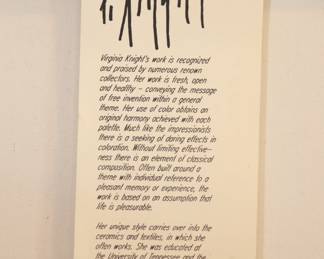 Virginia Knight's work is recognized
and praised by numerous renown
collectors. Her work is fresh, open
and healthy – conveying the message
of free invention within a general
theme. Her use of color obtains an
original harmony achieved with each
palette. Much like the impressionists
there is a seeking of daring effects in
coloration. Without limiting effective-
ness there is an element of classical
composition. Often built around a
theme with individual reference to a
pleasant memory or experience, the
work is based on an assumption that
life is pleasurable.
Her unique style carries over into the
ceramics and textiles, in which she
often works. She was educated at
the University of Tennessee and the